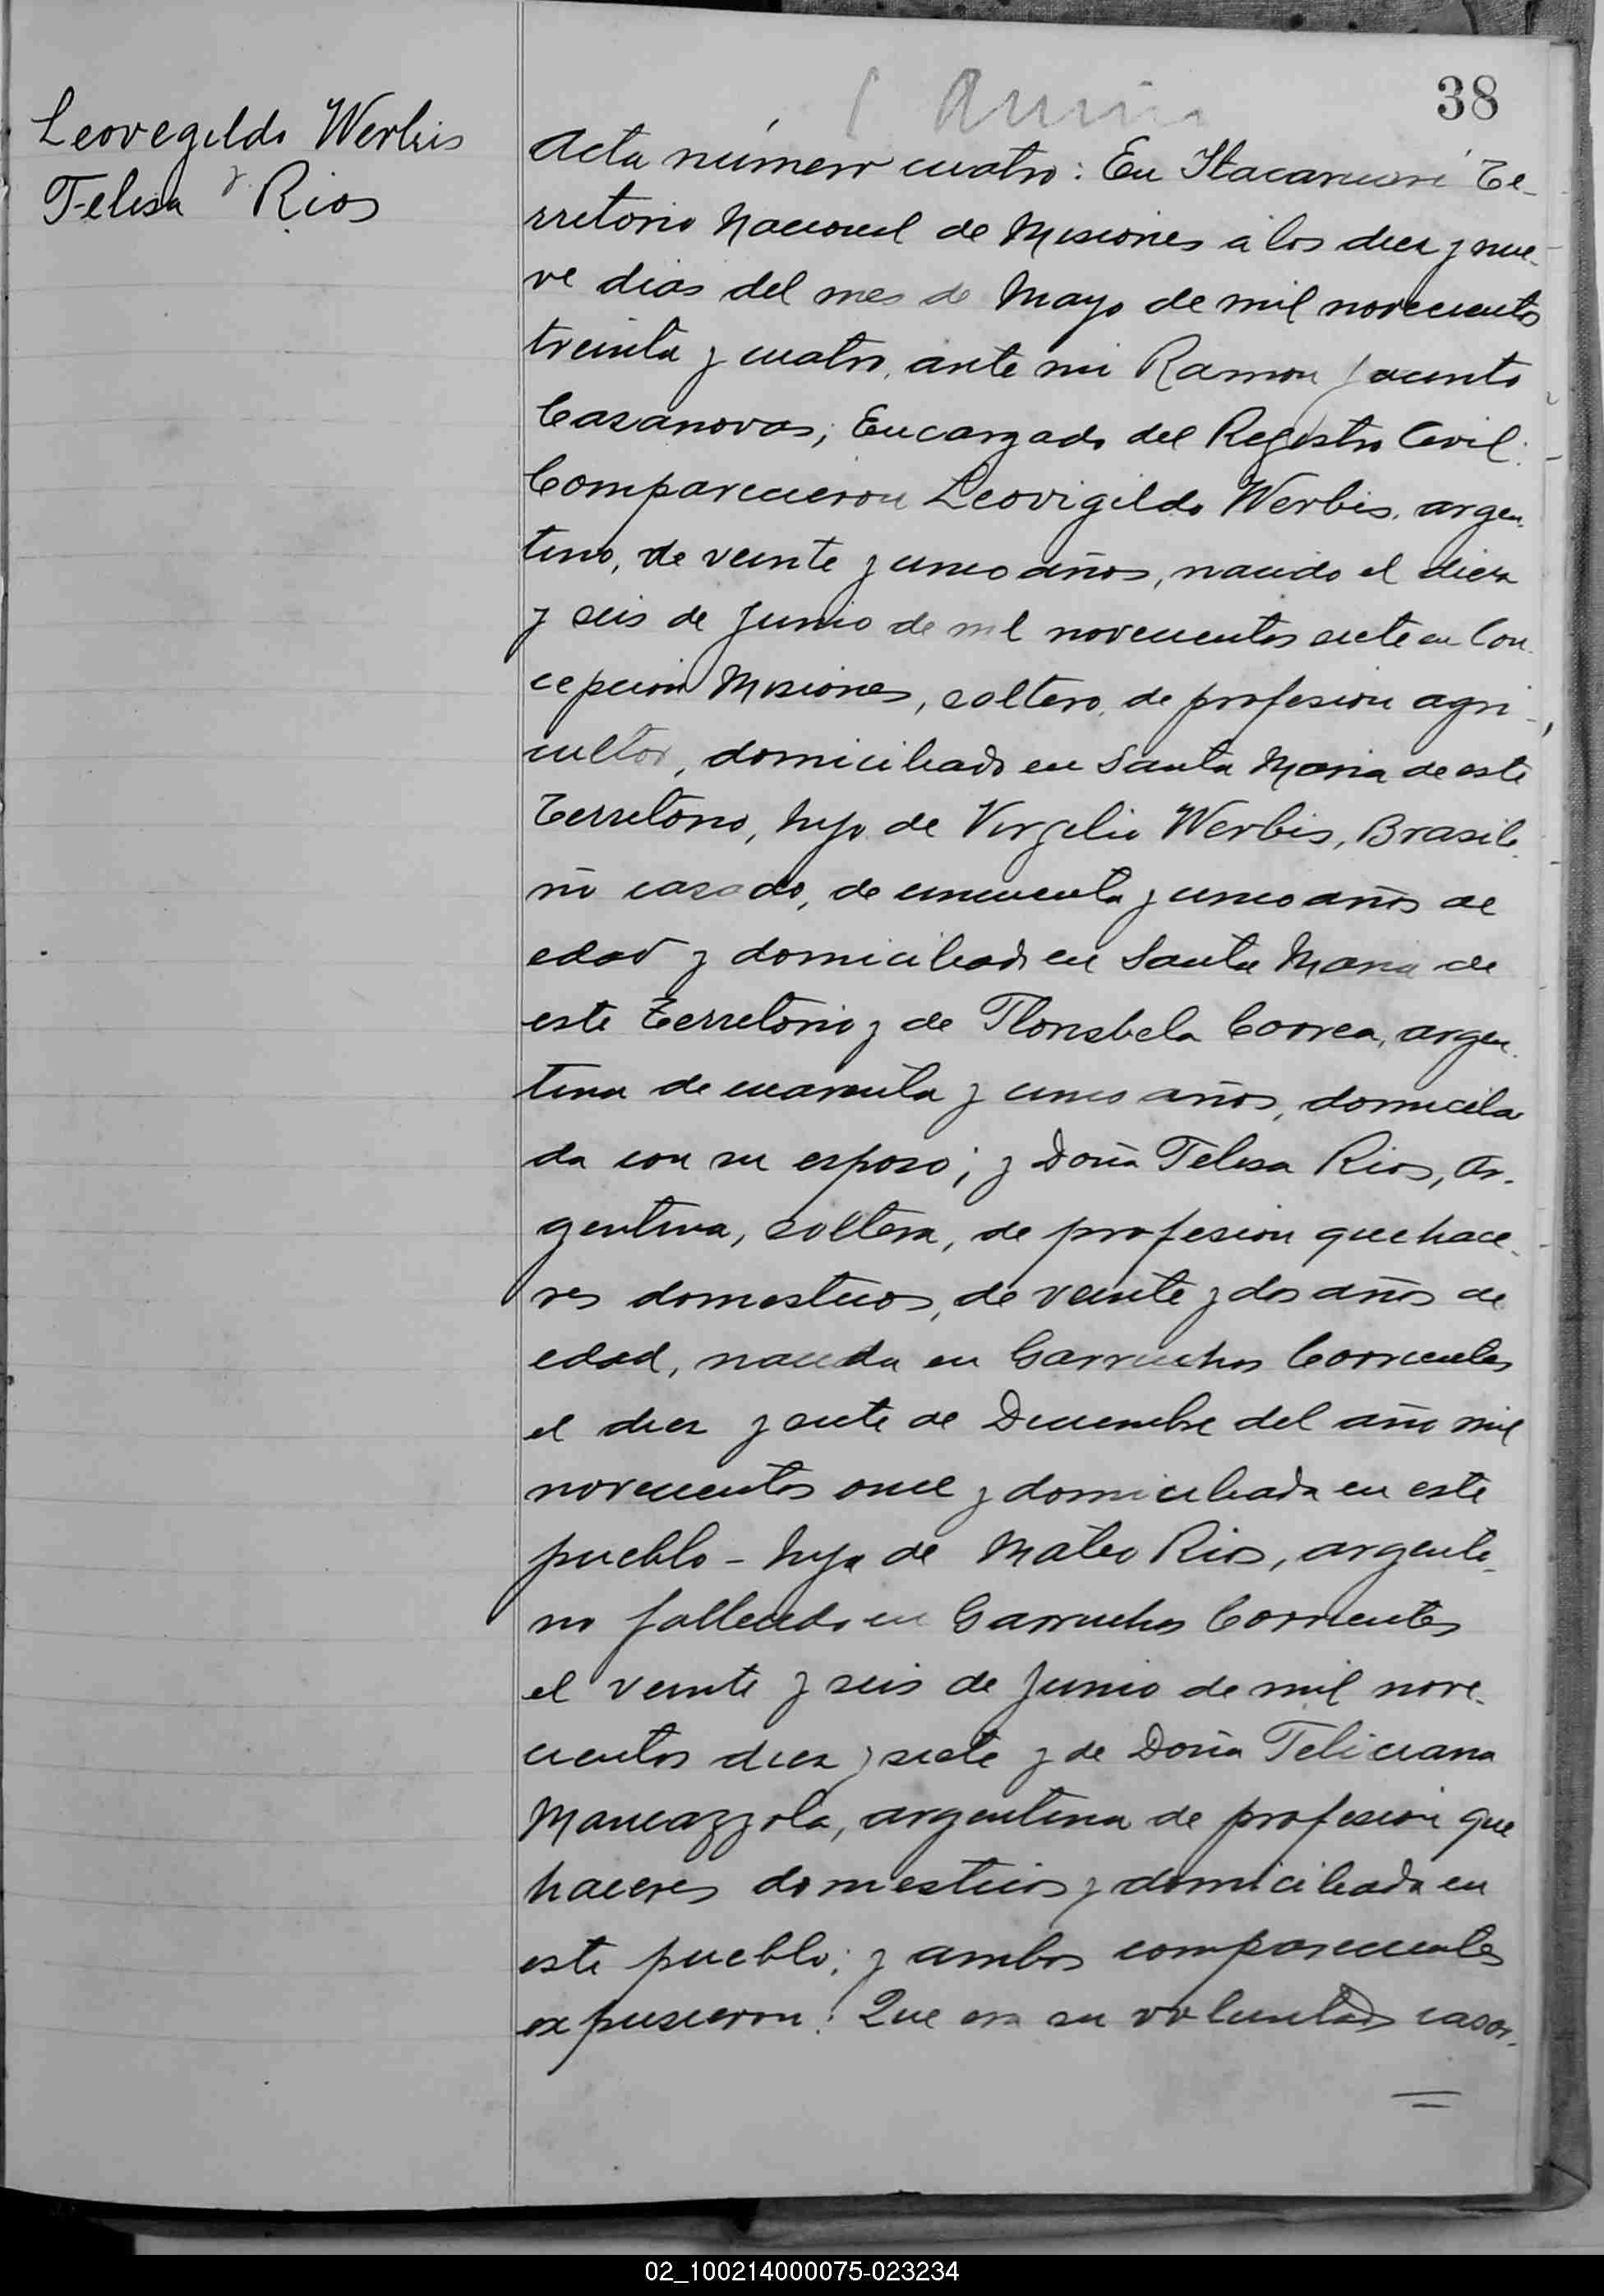 38
Leovegildo Werbis
y
Felisa Rios
Acta número cuatro: En Itacaruaré Te-
rritorio Nacional de Misiones á los diez y nue-
ve dias del mes de Mayo de mil novecientos
treinta y cuatro, ante mi Ramon Jacinto
Casanovas, Encargado del Registro Civil:
Comparecieron Leovigildo Werbis, argen-
tino, de veinte y cinco años, nacido el diez
y seis de Junio de mil novecientos siete en Con-
cepción Misiones, soltero, de profesion agri-
cultor, domiciliado en Santa Maria de este
Territorio, hijo de Virgilio Werbis, Brasile-
ño casado, de cincuenta y cinco años de
edad y domiciliado en Santa Maria de
este Territorio y de Florisbela Correa, argen-
tina de cuarenta y cinco años, domicilia
da con su esposo; y Doña Felisa Rios, Ar-
gentina, soltera, de profesion quehace-
res domesticos, de veinte y dos años de
edad, nacida en Garruchos Corrientes
el diez y siete de Diciembre del año mil
novecientos once y domiciliada en este
pueblo - hija de Mateo Rios, argenti-
no fallecido en Garruchos Corrientes
el veinte y seis de Junio de mil nove-
cientos diez y siete y de Doña Feliciana
argentina de profesion que
haceres domesticos y domiciliada en
este pueblo; y ambos comparecientes
expusieron: Que era su voluntad casar-
02_100214000075-023234